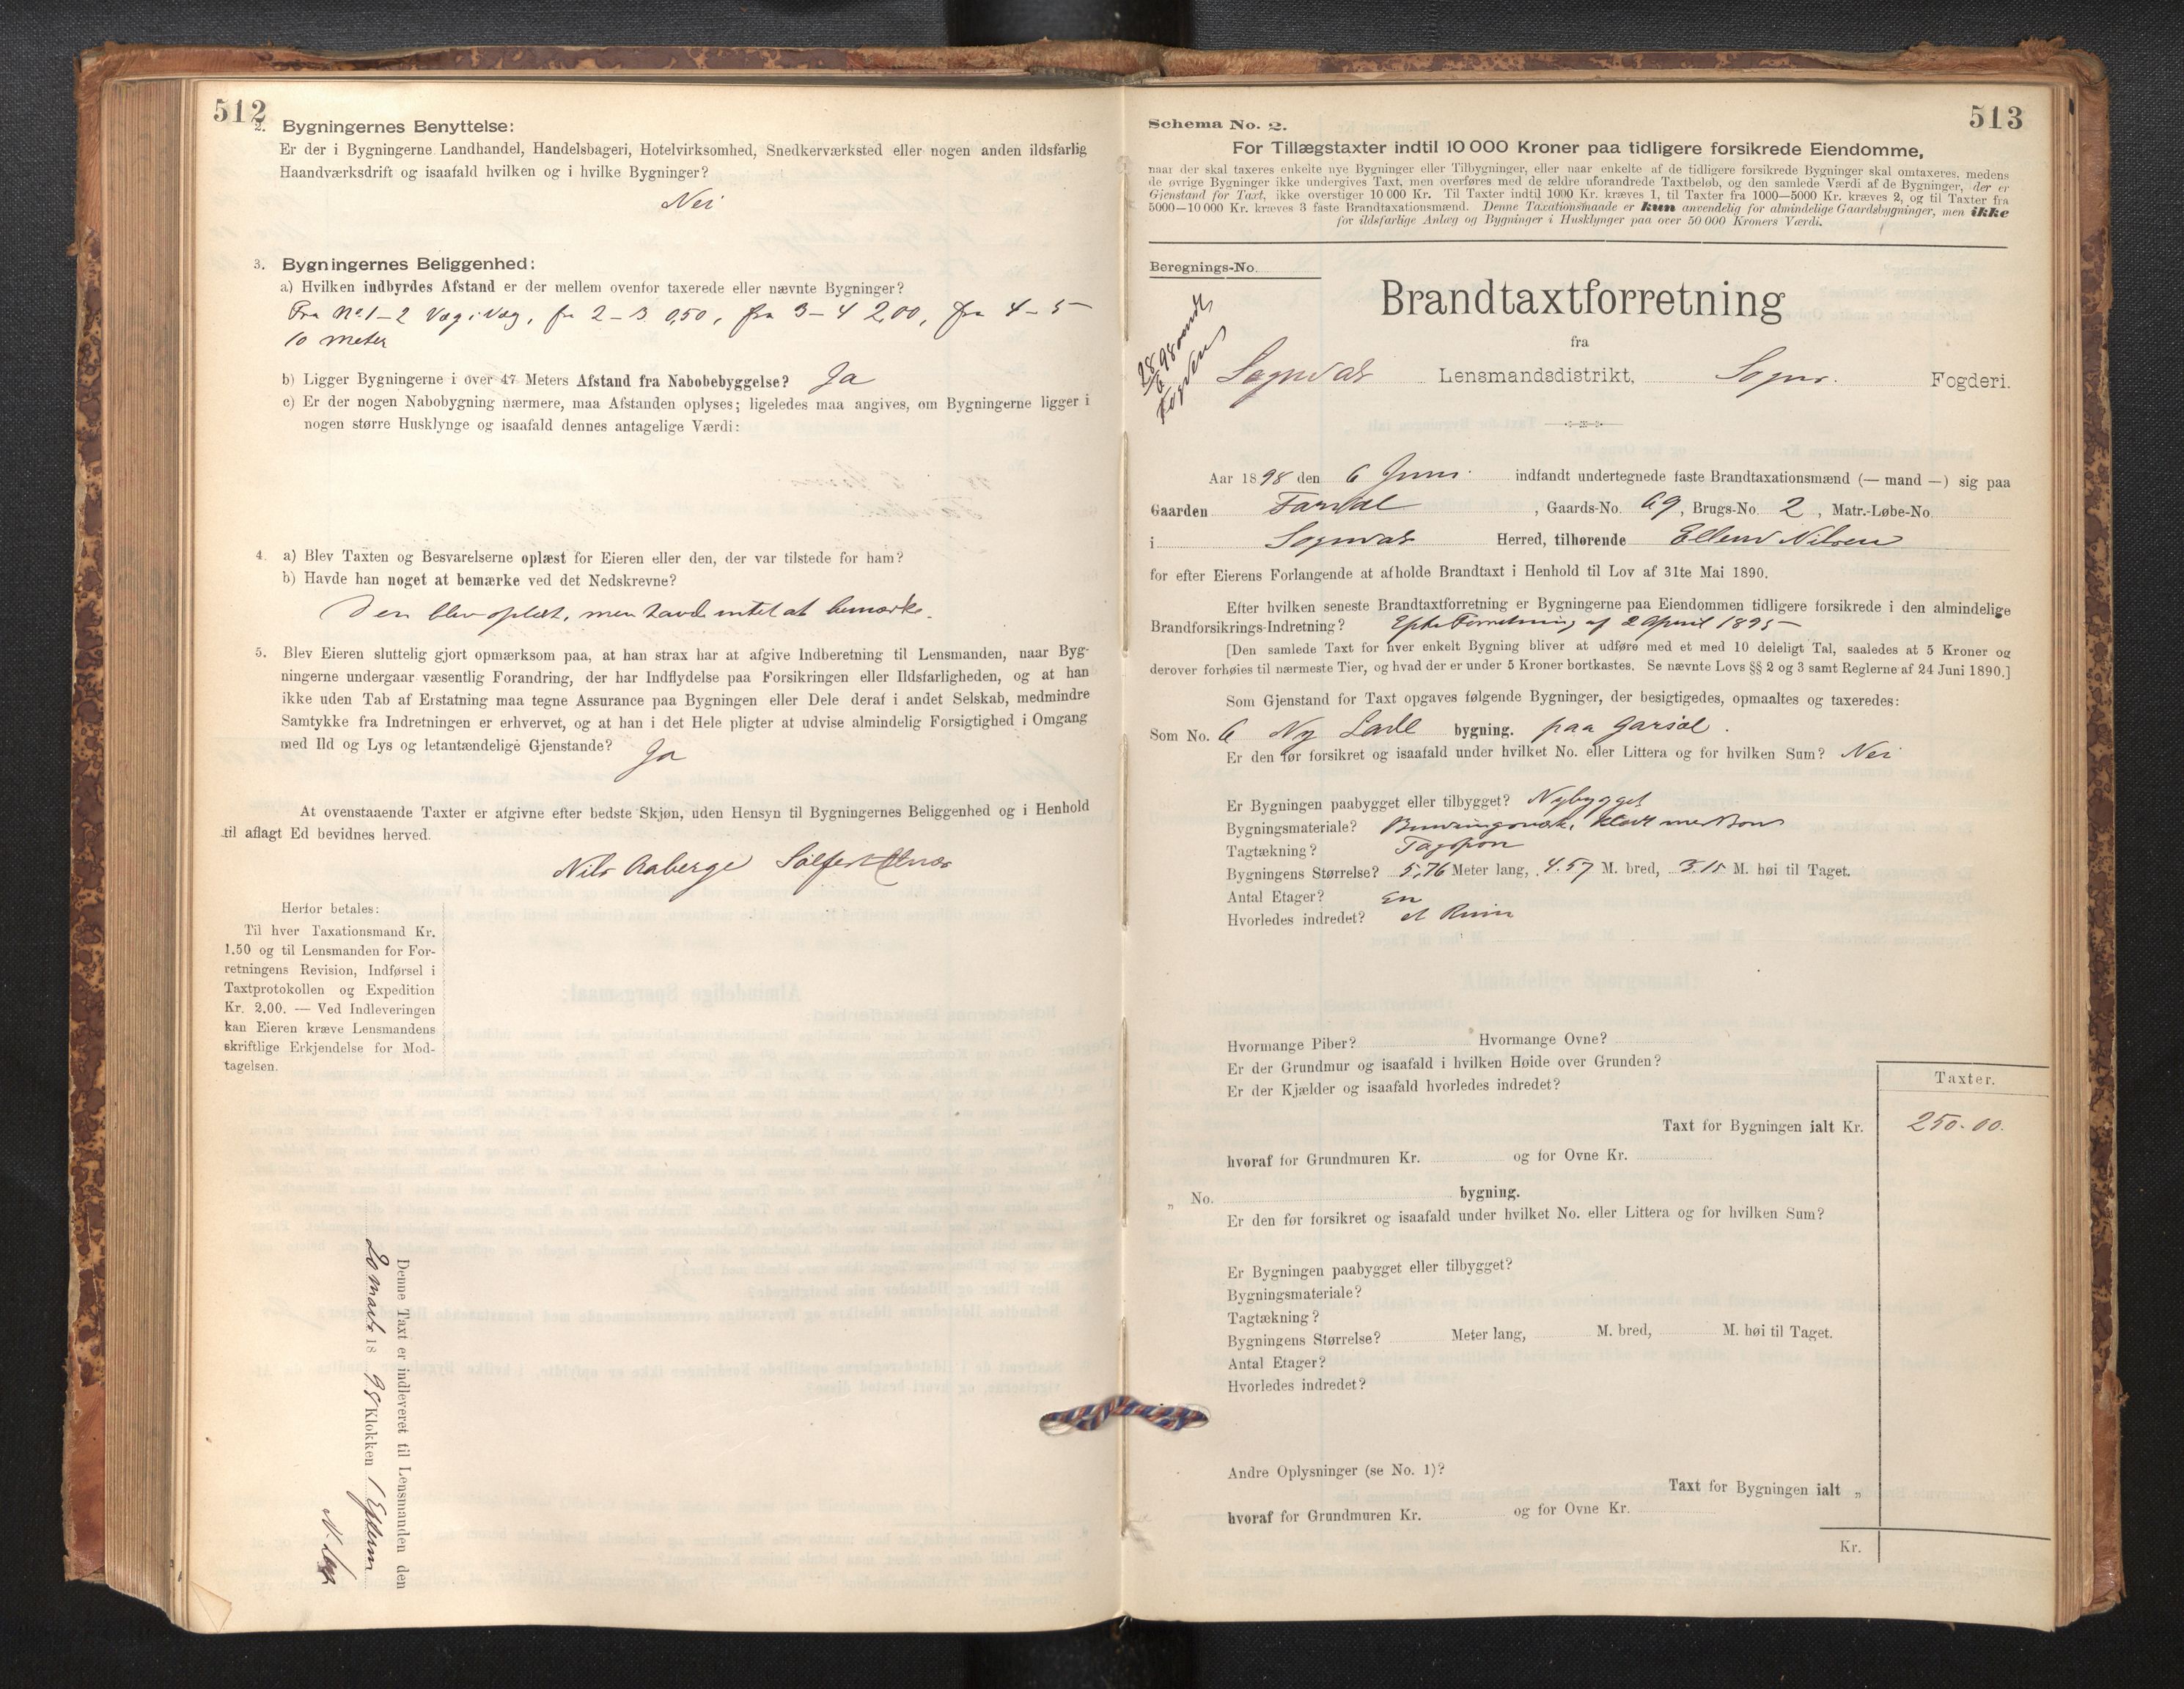 512
2. Bygningernes Benyttelse:
Er der i Bygningerne Landhandel, Handelsbageri, Hotelvirksomhed, Snedkerværksted eller nogen anden ildsfarlig
Haandværksdrift og isaafald hvilken og i hvilke Bygninger?
Nei
3. Bygningernes Beliggenhed:
a) Hvilken indbyrdes Afstand er der mellem ovenfor taxerede eller nævnte Bygninger?
Fra No 1–2 Væg i Væg, fra 2–3 0,50, fra 3–4 2,00, fra 4–5
10 meter
b) Ligger Bygningerne i over 47 Meters Afstand fra Nabobebyggelse? Ja
c) Er der nogen Nabobygning nærmere, maa Afstanden oplyses; ligeledes maa angives, om Bygningerne ligger i
nogen større Husklynge og isaafald dennes antagelige Værdi:
4. a) Blev Taxten og Besvarelserne oplæst for Eieren eller den, der var tilstede for ham?
b) Havde han noget at bemærke ved det Nedskrevne?
Den blev oplæst, men havde intet at bemærke.
5. Blev Eieren sluttelig gjort opmærksom paa, at han strax har at afgive Indberetning til Lensmanden, naar Byg-
ningerne undergaar væsentlig Forandring, der har Indflydelse paa Forsikringen eller Ildsfarligheden, og at han
ikke uden Tab af Erstatning maa tegne Assurance paa Bygningen eller Dele deraf i andet Selskab, medmindre
Samtykke fra Indretningen er erhvervet, og at han i det Hele pligter at udvise almindelig Forsigtighed i Omgang
med Ild og Lys og letantændelige Gjenstande? Ja
At ovenstaaende Taxter er afgivne efter bedste Skjøn, uden Hensyn til Bygningernes Beliggenhed og i Henhold
til aflagt Ed bevidnes herved.
Nils Aaberge
Herfor betales:
Til hver Taxationsmand Kr.
1.50 og til Lensmanden for For-
retningens Revision, Indførsel i
Taxtprotokollen og Expedition
Kr. 2.00. — Ved Indleveringen
kan Eieren kræve Lensmandens
skriftlige Erkjendelse for Mod-
tagelsen.
Denne Taxt er indleveret til Lensmanden den
20 marts 1898 Klokken 1 Efterm
513
Schema No. 2.
For Tillægstaxter indtil 10 000 Kroner paa tidligere forsikrede Eiendomme,
naar der skal taxeres enkelte nye Bygninger eller Tilbygninger, eller naar enkelte af de tidligere forsikrede Bygninger skal omtaxeres, medens
de øvrige Bygninger ikke undergives Taxt, men overføres med de ældre uforandrede Taxtbeløb, og den samlede Værdi af de Bygninger, der er
Gjenstand for Taxt, ikke overstiger 10 000 Kr. Til Taxter indtil 1000 Kr. kræves 1, til Taxter fra 1000—5000 Kr. kræves 2, og til Taxter fra
5000—10 000 Kr. kræves 3 faste Brandtaxationsmænd. Denne Taxationsmaade er kun anvendelig for almindelige Gaardsbygninger, men ikke
for ildsfarlige Anlæg og Bygninger i Husklynger paa over 50 000 Kroners Værdi.
Beregnings-No.
28/6 98 sendt
Fogden
Brandtaxtforretning
fra
Sogndal Lensmandsdistrikt, Sogns Fogderi.
Aar 1898 den 6 Juni indfandt undertegnede faste Brandtaxationsmænd (— mand —) sig paa
Gaarden Fardal, Gaards-No. 69, Brugs-No. 2, Matr.-Løbe-No.
i Sogndal Herred, tilhørende Ellend Nilsen
for efter Eierens Forlangende at afholde Brandtaxt i Henhold til Lov af 31te Mai 1890.
Efter hvilken seneste Brandtaxtforretning er Bygningerne paa Eiendommen tidligere forsikrede i den almindelige
Brandforsikrings-Indretning? Efter Forretning af 2 April 1895
[Den samlede Taxt for hver enkelt Bygning bliver at udføre med et med 10 deleligt Tal, saaledes at 5 Kroner og
derover forhøies til nærmeste Tier, og hvad der er under 5 Kroner bortkastes. Se nævnte Lovs §§ 2 og 3 samt Reglerne af 24 Juni 1890.]
Som Gjenstand for Taxt opgaves følgende Bygninger, der besigtigedes, opmaaltes og taxeredes:
Som No. 6 Ny Lade bygning. paa
Er den før forsikret og isaafald under hvilket No. eller Littera og for hvilken Sum? Nei
Er Bygningen paabygget eller tilbygget? Nybygget
Bygningsmateriale? Bindingsværk, klædt med Bord
Tagtækning? Tagspon
Bygningens Størrelse? 5,76 Meter lang, 4.57 M. bred, 3.15 M. høi til Taget.
Antal Etager? En
Hvorledes indredet? et Rum
Hvormange Piber? Hvormange Ovne?
Er der Grundmur og isaafald i hvilken Høide over Grunden?
Er der Kjælder og isaafald hvorledes indredet?
Taxter.
Taxt for Bygningen ialt Kr. 250.00.
hvoraf for Grundmuren Kr. og for Ovne Kr.
„ No. bygning.
Er den før forsikret og isaafald under hvilket No. eller Littera og for hvilken Sum?
Er Bygningen paabygget eller tilbygget?
Bygningsmateriale?
Tagtækning?
Bygningens Størrelse? Meter lang, M. bred, M. høi til Taget.
Antal Etager?
Hvorledes indredet?
Andre Oplysninger (se No. 1)?
Taxt for Bygningen ialt „
hvoraf for Grundmuren Kr. og for Ovne Kr.
Kr.